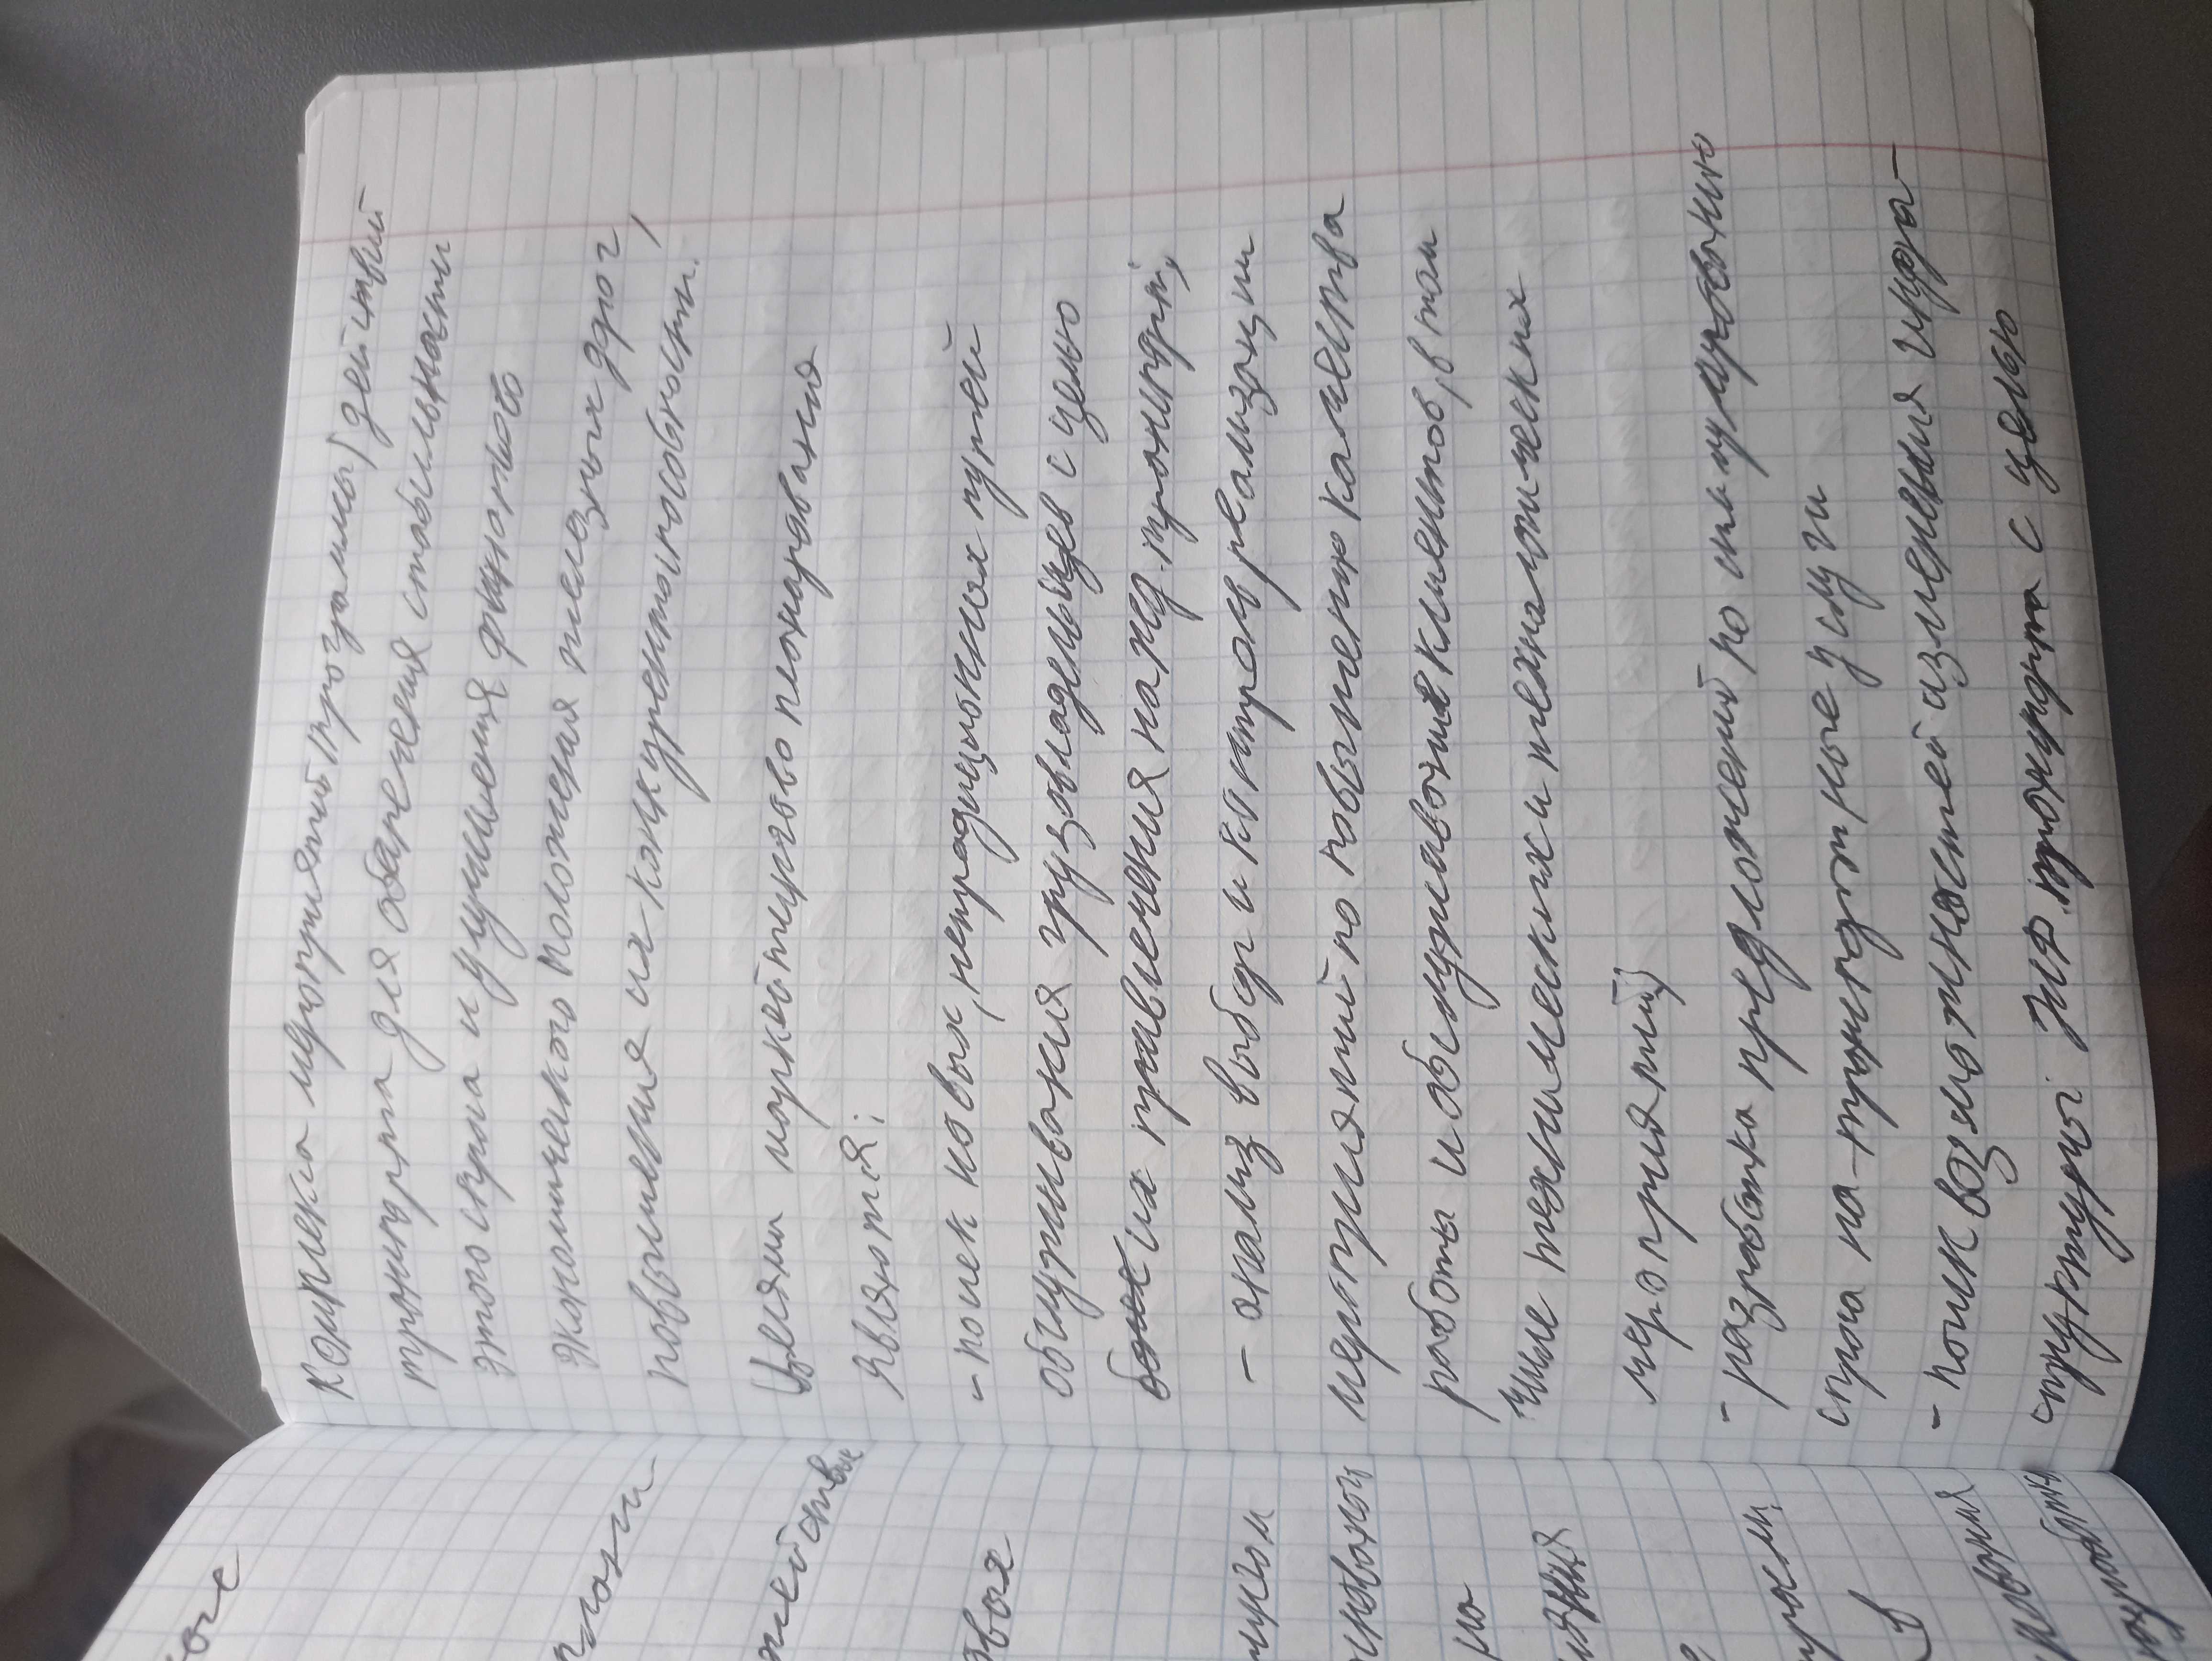 Комплекс мероприятий (программы) действий
транспорта для обеспечения стабильности
этого спроса и улучшения финансово
экономического положения железных дорог,
повышения их конкурентоспособности.
Целями маркетингово планирования
являются:
- поиск новых, нетрадиционных путей
обслуживания грузовладельцев с целью
их привлечения на жд. транспорт;
- анализ выбор и контроль реализации
мероприятий по повышению качества
работы и обслуживания клиентов, в том
числе технических и технологических
мероприятий;
- разработка предложений по стимулированию
спроса на транспортные услуги
- поиск возможностей изменения инфра-
структуры ЖД транспорта с целью
ное